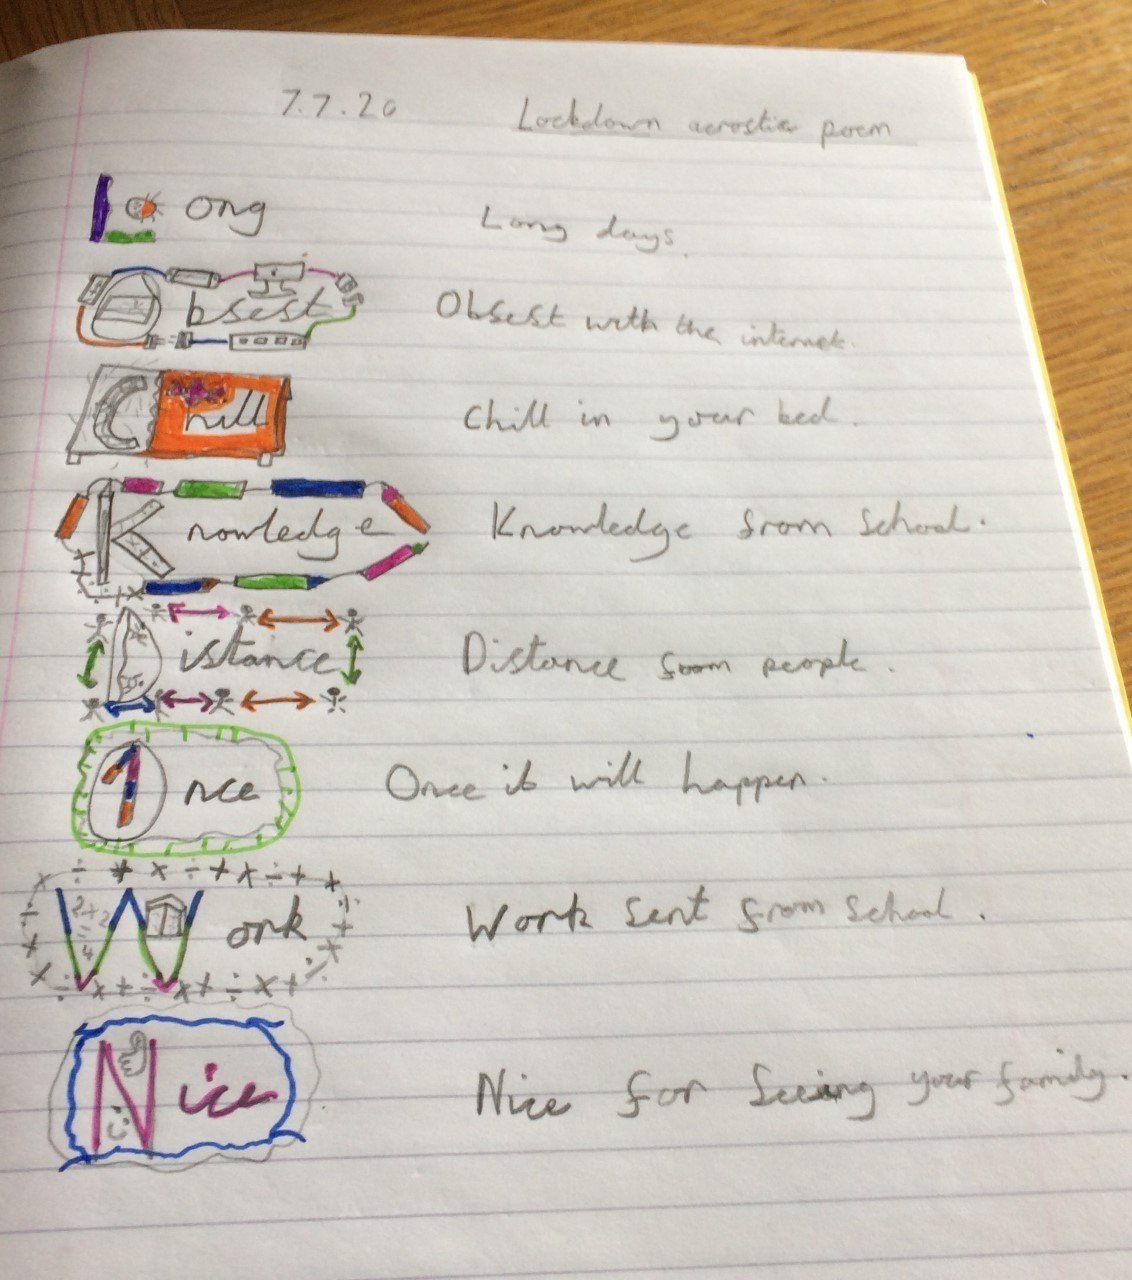 7.7.20 Lockdown acrostic poem
Long Long days.
Obsest Obsest with the internet.
Chill Chill in your bed.
Knowledge Knowledge from school.
Distance Distance from people.
1nce Once it will happen.
2+2
=
4
Work Work sent from school.
Nice Nice for seeing your family.